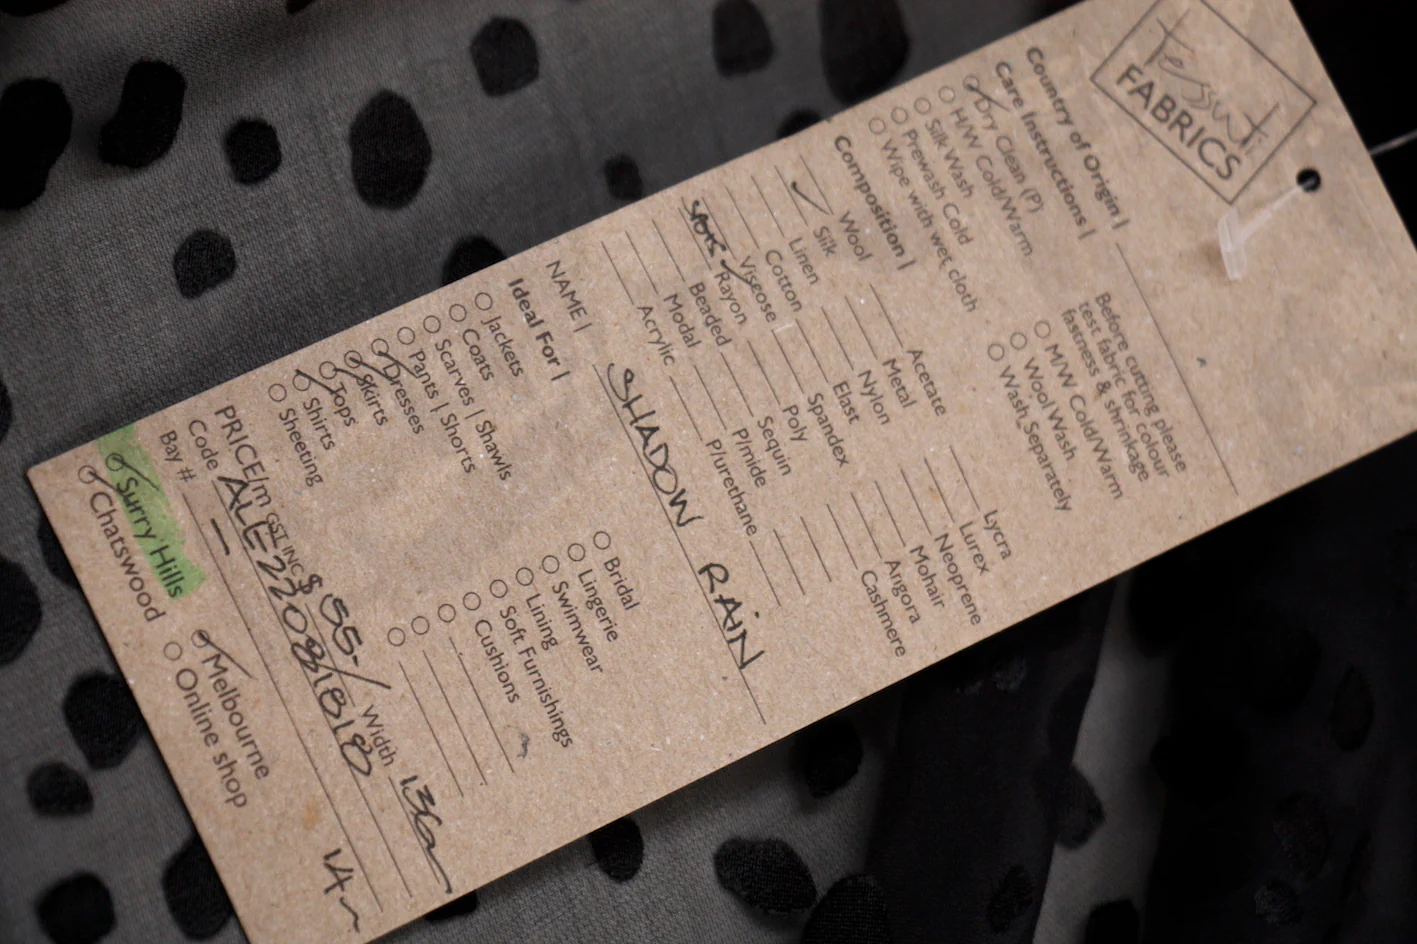 Tessuti
FABRICS
Country of Origin |
Care Instructions |
Dry Clean (P)
H/W Cold/Warm
Silk Wash
Prewash Cold
Wipe with wet cloth
Before cutting please
test fabric for colour
fastness & shrinkage
M/W Cold/Warm
Wool Wash
Wash Separately
Composition |
Wool Acetate Lycra
Silk Metal Lurex
Linen Nylon Neoprene
Cotton Elast Mohair
Viscose Spandex Angora
SPOTS Rayon Poly Cashmere
Beaded Sequin
Modal P/mide
Acrylic P/urethane
NAME | SHADOW RAIN
Ideal For |
Jackets Bridal
Coats Lingerie
Scarves | Shawls Swimwear
Pants | Shorts Lining
Dresses Soft Furnishings
Skirts Cushions
Tops
Shirts
Sheeting
PRICE/m GST INC $ 55.- Width
Code ALE2208/1818
Bay # -
Surry Hills Melbourne
Chatswood Online shop